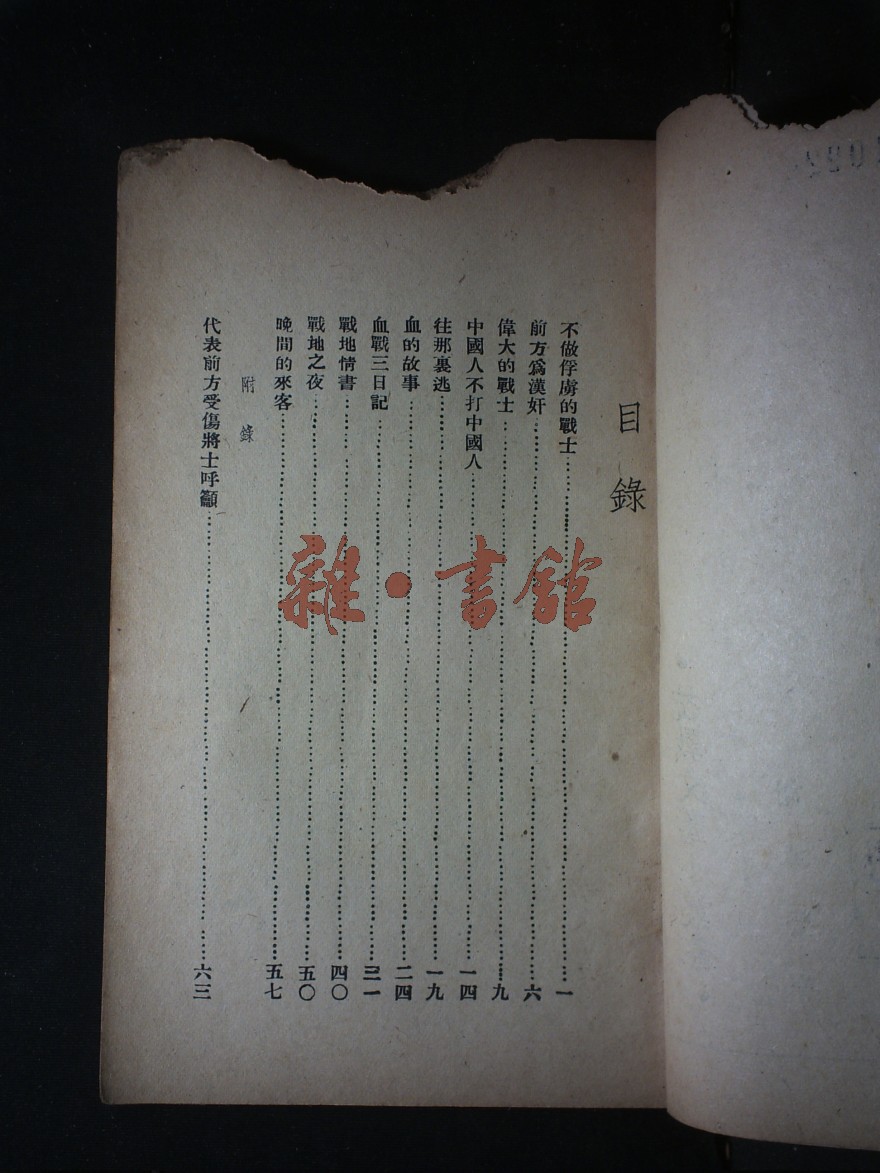 目錄
不做俘虜的戰士……一
前方爲漢奸……六
偉大的戰士……九
中國人不打中國人……一四
往那裏逃……一九
血的故事……二四
血戰三日記……三一
戰地情書……四〇
戰地之夜……五〇
晚間的來客……五七
附錄
代表前方受傷將士呼籲……六三
雜·書館